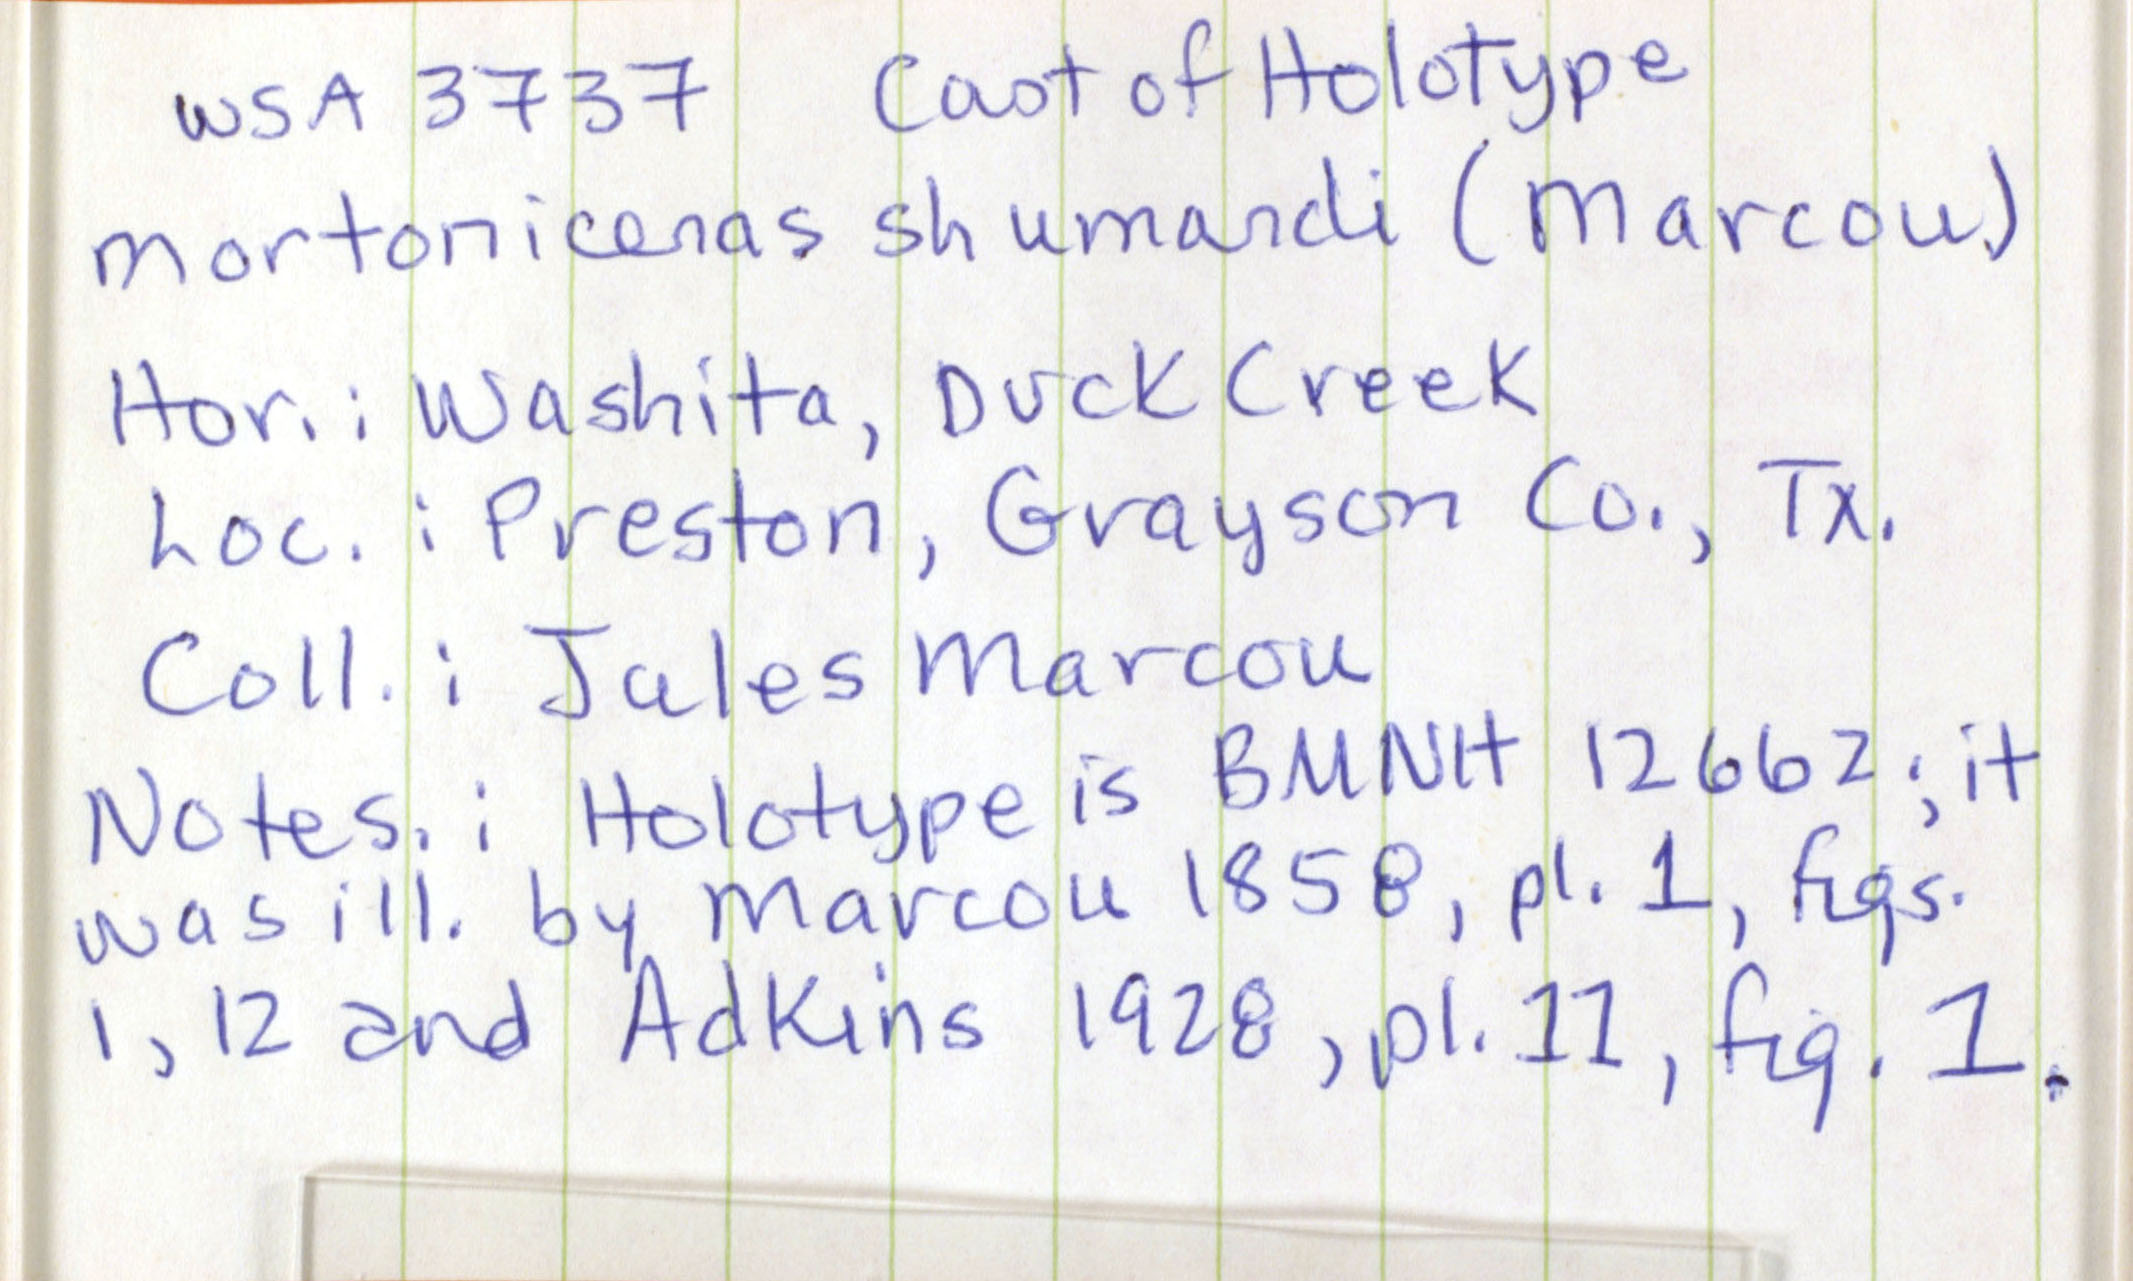 WSA 3737 Cast of Holotype
Mortoniceras shumardi (Marcou)
Hor.: Washita, Duck Creek
Loc.: Preston, Grayson Co., Tx.
Coll.: Jules Marcou
Notes.: Holotype is BMNH 12662; it
was ill. by Marcou 1858, pl. 1, figs.
1, 12 and Adkins 1928, pl. 11, fig. 1.